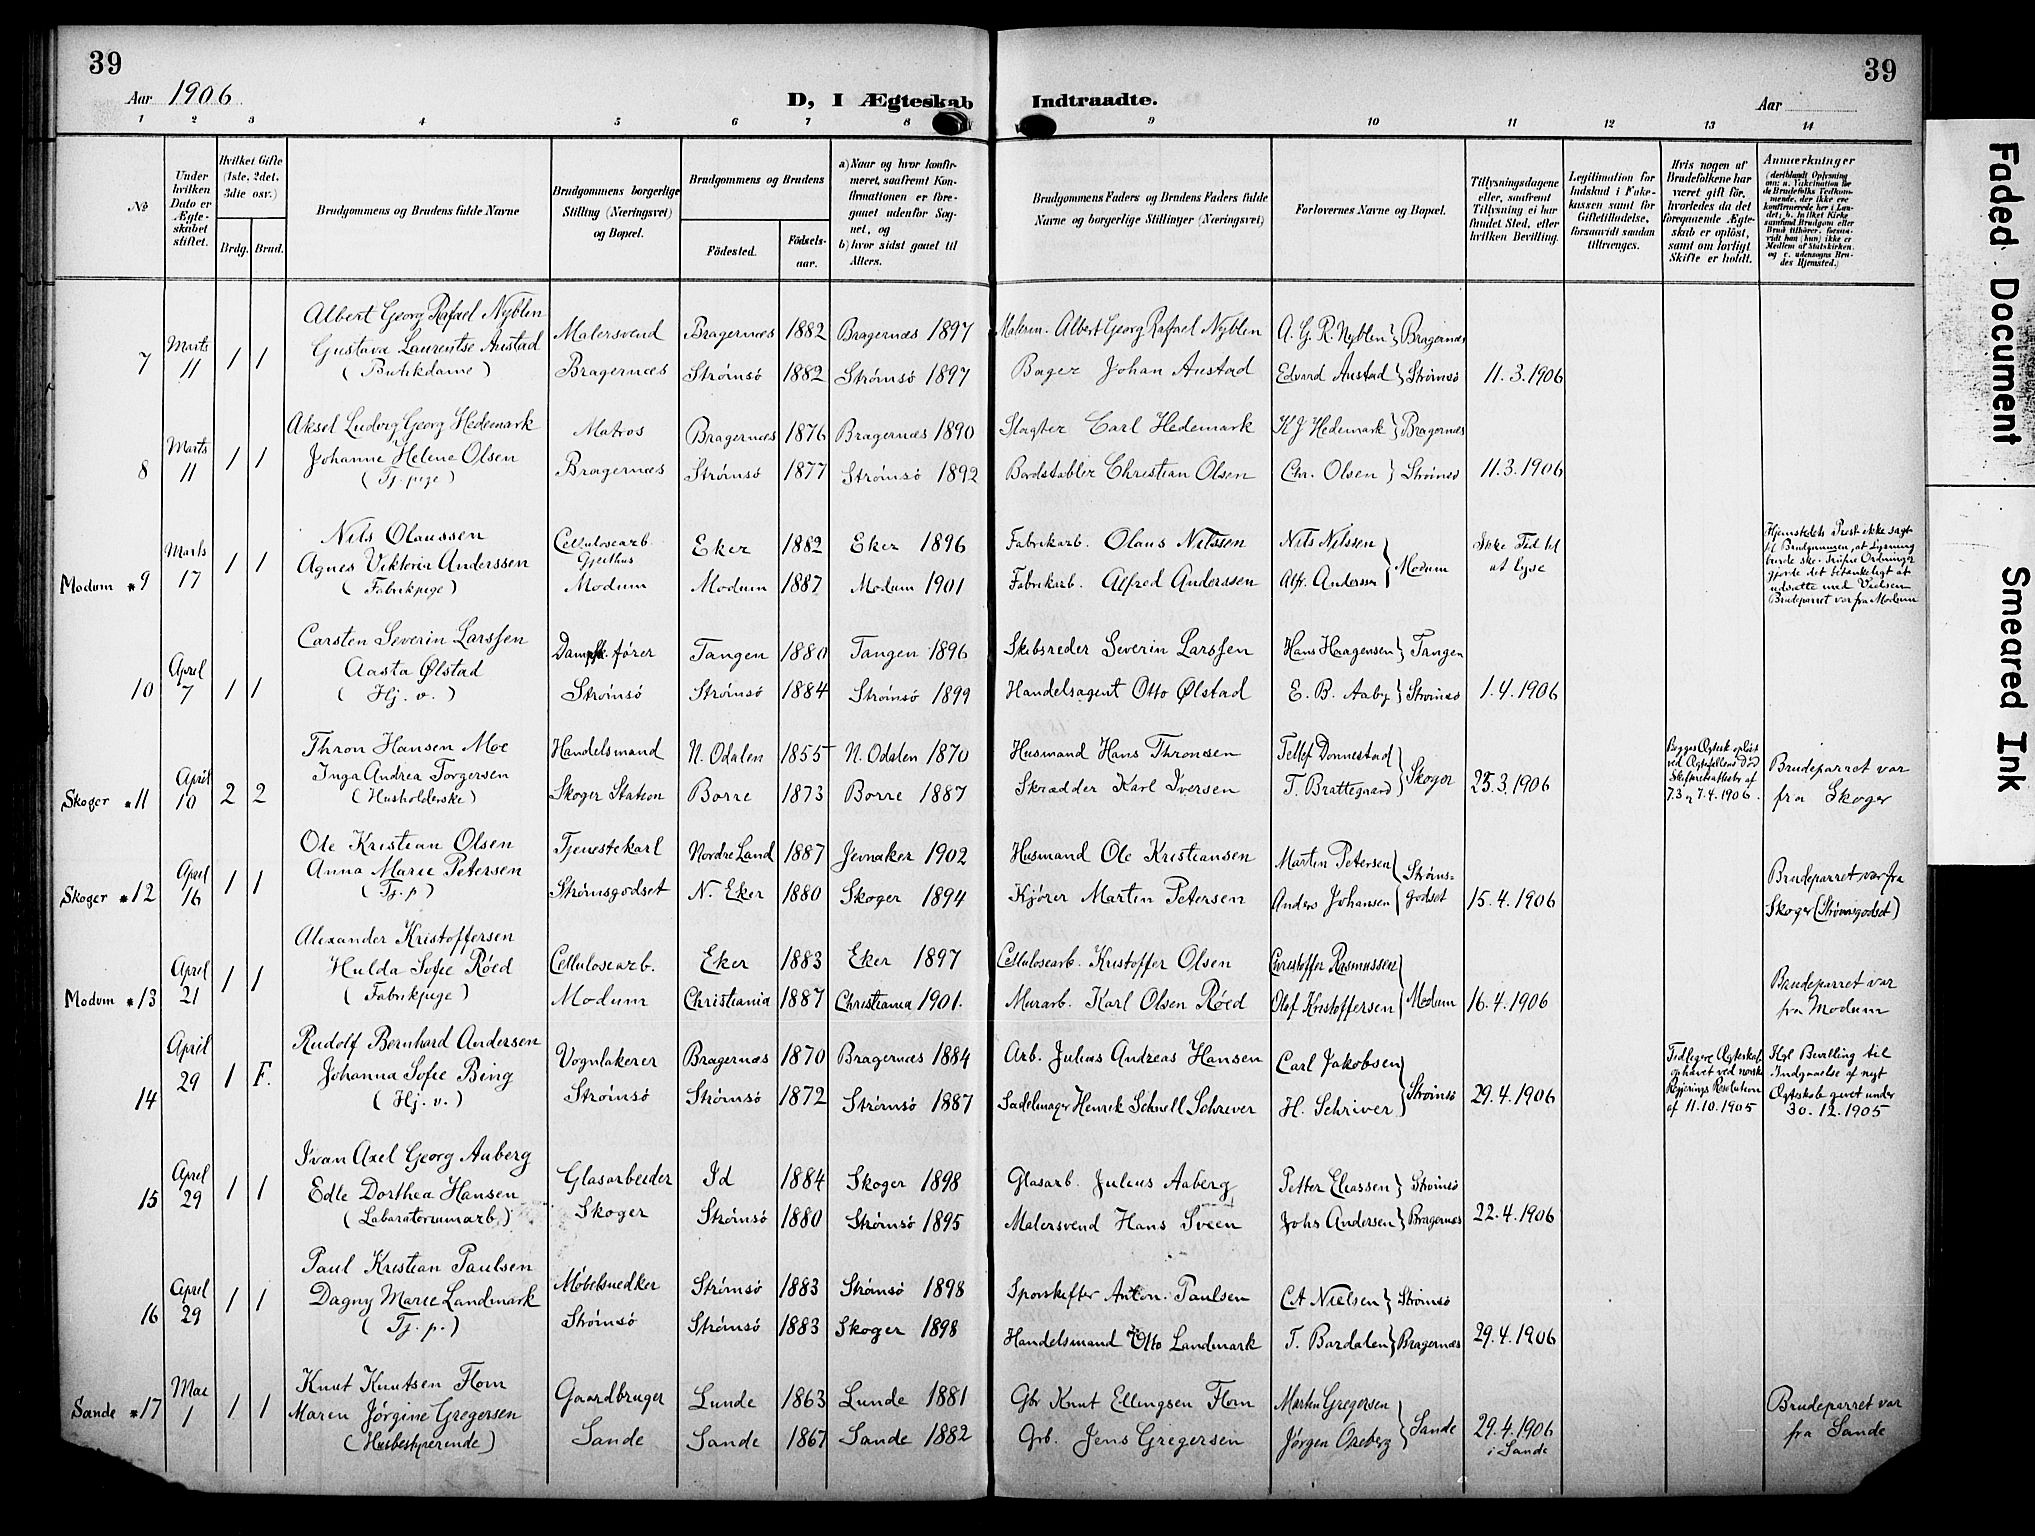 39
39
Aar 1906
D, I Ægteskab Indtraadte.
Aar
1 2 3 4 5 6 7 8 9 10 11 12 13 14
№
Under hvilken Dato er Ægteskabet stiftet.
Hvilket Gifte (1ste, 2det, 3die osv.)
Brdg. Brud.
Brudgommens og Brudens fulde Navne
Brudgommens borgerlige Stilling (Næringsvei) og Bopæl.
Brudgommens og Brudens
Födested. Födselsaar.
a) Naar og hvor konfirmeret, saafremt Konfirmationen er foregaaet udenfor Sognet, og
b) hvor sidst gaaet til Alters.
Brudgommens Faders og Brudens Faders fulde Navne og borgerlige Stillinger (Næringsvei)
Forlovernes Navne og Bopæl.
Tillysningsdagene eller, saafremt Tillysning ei har fundet Sted, efter hvilken Bevilling.
Legitimation for Indskud i Enkekassen samt for Giftetilladelse, forsaavidt saadan tiltrænges.
Hvis nogen af Brudefolkene har været gift før, hvorledes da det foregaaende Ægteskab er oplöst, samt om lovligt Skifte er holdt.
Anmærkninger (deriblandt Oplysning om: a. Vakcination for de Brudefolks Vedkommende, der ikke ere konfirmerede her i Landet; b. hvilket Kirkesamfund Brudgom eller Brud tilhører, forsaavidt han (hun) ikke er Medlem af Statskirken, og c. udensogns Brudes Hjemsted.)
7 Marts 11 1 1 Albert Georg Rafael Nyblin Malersvend Bragernæs 1882 Bragernæs 1897 Albert Georg Rafael Nyblin A. G. R. Nyblen } Bragernæs
Gustava Laurentse Austad
(Butikdame) Bragernæs Strømsö 1882 Strømsö 1897 Bager Johan Austad Edvard Austad } Strømsö 11.3.1906
8 Marts 11 1 1 Aksel Ludvig Georg Hedemark Matros Bragernæs 1876 Bragernæs 1890 Slagter Carl Hedemark K J Hedemark } Bragernæs
Johanne Helene Olsen
(Tj. pige) Bragernæs Strømsö 1877 Strømsö 1892 Bordstabler Christian Olsen Chr. Olsen } Strømsö 11.3.1906
Modum * 9 Marts 17 1 1 Nils Olaussen Cellulosearb. Eker 1882 Eker 1896 Fabrikarb. Olaus Nilssen Nils Nilssen Ikke Tid til
Agnes Viktoria Anderssen Gjeithus
(Fabrikpige) Modum Modum 1887 Modum 1901 Fabrikarb. Alfred Anderssen Alf. Anderssen } Modum at lyse
Hjemstedets Prest ikke sagt
til Brudgommen, at Lysning
burde ske.
gjorde det betænkeligt at
udsætte med Vielsen
Brudeparret var fra Modum
10 April 7 1 1 Carsten Severin Larssen Dampsk. fører Tangen 1880 Tangen 1896 Skibsreder Severin Larssen Hans Haagensen } Tangen
Aasta Ølstad
(Hj. v.) Strømsö Strømsö 1884 Strømsö 1899 Handelsagent Otto Ølstad E. B. Aaby } Strømsö 1.4.1906
Skoger * 11 April 10 2 2 Thron Hansen Moe Handelsmand N. Odalen 1855 N. Odalen 1870 Husmand Hans Thronsen Tellef Donnestad
Inga Andrea Torgersen
(Husholderske) Skoger Station Borre 1873 Borre 1887 Skrædder Karl Iversen T. Brattegaard } Skoger 25.3.1906
Begges Ægtesk. opløst
ved Ægtefællens Død
Skifteretsattester af
7.3 og 7.4.1906.
Brudeparret var
fra Skoger
Skoger * 12 April 16 1 1 Ole Kristian Olsen Tjenestekarl Nordre Land 1887 Jevnaker 1902 Husmand Ole Kristiansen Martin Petersen
Anna Marie Petersen
(Tj. p) Strømsgodset N. Eker 1880 Skoger 1894 Kjører Martin Petersen Anders Johansen } Strømsgodset 15.4.1906
Brudeparret var fra
Skoger (Strømsgodset)
Modum * 13 April 21 1 1 Alexander Kristoffersen Cellulosearb. Eker 1883 Eker 1897 Cellulosearb. Kristoffer Olsen Christoffer Rasmussen
Hulda Sofie Röed
(Fabrikpige) Modum Christiania 1887 Christiania 1901. Murarb. Karl Olsen Röed Olof Kristoffersen } Modum 16.4.1906
Brudeparret var
fra Modum
14 April 29 1 F. Rudolf Bernhard Andersen Vognlakerer Bragernæs 1870 Bragernæs 1884 Arb. Julius Andreas Hansen Carl Jakobsen
Johanna Sofie Bing
(Hj. v.) Strømsö Strømsö 1872 Strømsö 1887 Sadelmager Henrik Schnell Schriver H. Schriver } Strømsö 29.4.1906
Tidligere Ægteskab
ophævet ved norsk
Regjerings Resolution
af 11.10.1905
Kgl Bevilling til
Indgaaelse af nyt
Ægteskab givet under
30.12.1905
15 April 29 1 1 Ivan Axel Georg Aaberg Glasarbeider Id 1884 Skoger 1898 Glasarb. Julius Aaberg Petter Eliassen } Strømsö
Edle Dorthea Hansen
(Labaratoriumarb.) Skoger Strømsö 1880 Strømsö 1895 Malersvend Hans Sveen Johs Andersen } Bragernæs 22.4.1906
16 April 29 1 1 Paul Kristian Paulsen Møbelsnedker Strømsö 1883 Strømsö 1898 Sporskifter Anton. Paulsen C A Nielsen } Strømsö
Dagny Marie Landmark
(Tj. p.) Strømsö Strømsö 1883 Skoger 1898 Handelsmand Otto Landmark T. Bardalen } Bragernæs 29.4.1906
Sande * 17 Mai 1 1 1 Knut Knutsen Flom Gaardbruger Lunde 1863 Lunde 1881 Gbr Knut Ellingsen Flom Martin Gregersen
Maren Jørgine Gregersen
(Husbestyrerende) Sande Sande 1867 Sande 1882 Grb. Jens Gregersen Jørgen Oreberg } Sande 29.4.1906
i Sande
Brudeparret var
fra Sande
Faded Document
Smeared Ink